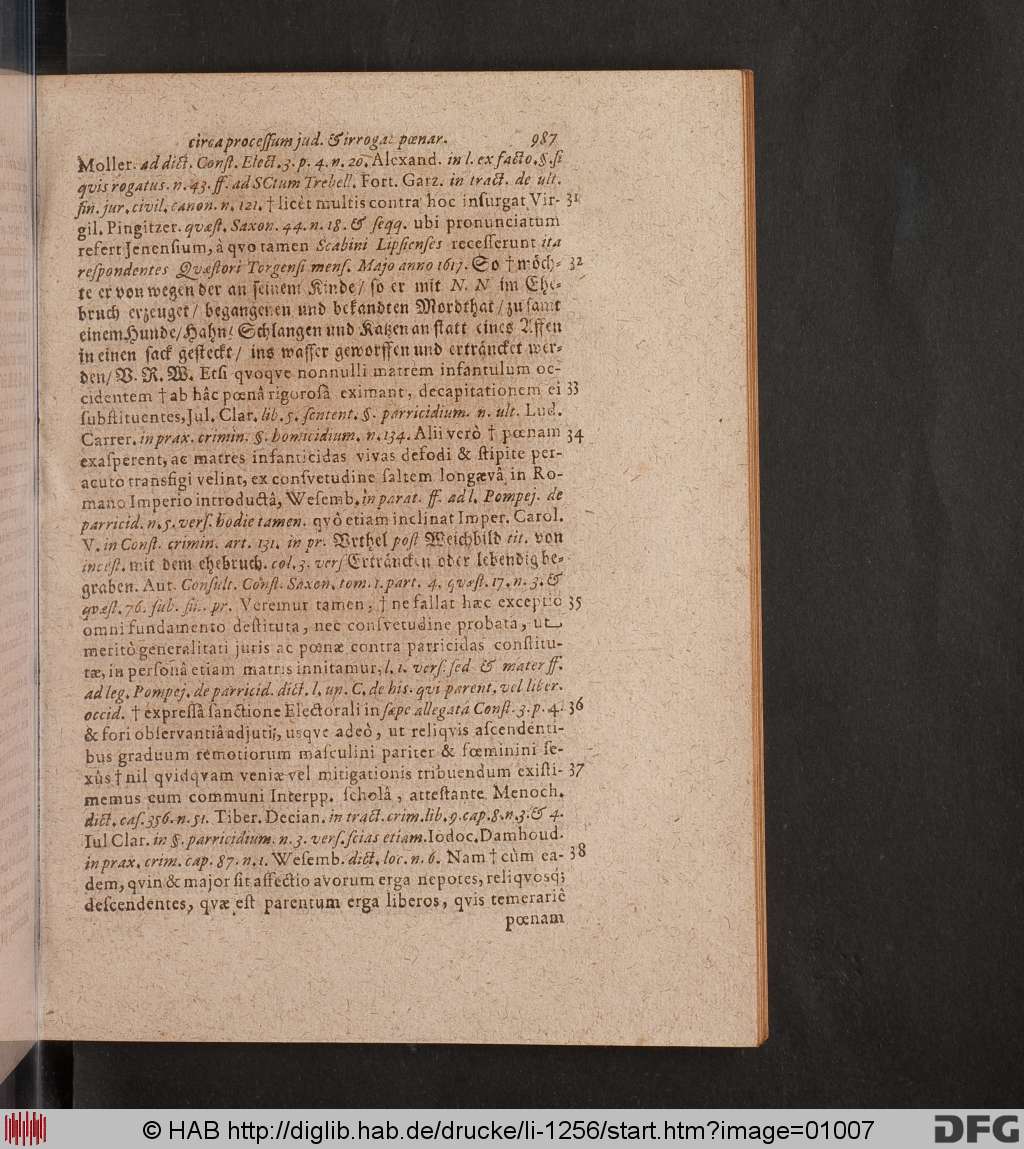 circa processum jud. & irrogat. pœnar. 987
Moller. ad dict. Const. Elect. 3. p. 4. n. 20. Alexand. in l. ex facto. §. si
qvis rogatus. n. 43. ff. ad SCtum Trebell. Fort. Garz. in tract. de ult.
fin. jur. civil. canon. n. 121. † licèt multis contra hoc insurgat Vir- 31
gil. Pingitzer. qvæst. Saxon. 44. n. 18. & seqq. ubi pronunciatum
refert Jenensium, à qvo tamen Scabini Lipsienses recesserunt ita
respondentes Qvæstori Torgensi mens. Majo anno 1617. So † möch- 32
te er von wegen der an seinem Kinde/ so er mit N. N im Ehe-
bruch erzeuget/ begangenen und bekandten Mordthat/ zu samt
einem Hunde/ Hahn/ Schlangen und Katzen an statt eines Affen
in einen sack gesteckt/ ins wasser geworffen und erträncket wer-
den/ V. R. W. Etsi qvoqve nonnulli matrem infantulum oc-
cidentem † ab hâc pœnâ rigorosâ eximant, decapitationem ei 33
substituentes, Jul. Clar. lib. 5. sentent. §. parricidium. n. ult. Lud.
Carrer. in prax. crimin. §. homicidium. n. 134. Alii verò † pœnam 34
exasperent, ac matres infanticidas vivas defodi & stipite per-
acuto transfigi velint, ex consvetudine saltem longævâ in Ro-
mano Imperio introductâ, Wesemb. in parat. ff. ad l. Pompej. de
parricid. n. 5. vers. hodie tamen. qvô etiam inclinat Imper. Carol.
V. in Const. crimin. art. 131. in pr. Vrthel post Weichbild tit. von
incest. mit dem ehebruch. col. 3. vers Erträncken oder lebendig be-
graben. Aut. Consult. Const. Saxon. tom. 1. part. 4. qvæst. 17. n. 3. &
qvæst. 76. sub. fin. pr. Veremur tamen, † ne fallat hæc exceptio 35
omni fundamento destituta, nec consvetudine probata, ut
meritò generalitati juris ac pœnæ contra parricidas constitu-
tæ, in personâ etiam matris innitamur, l. 1. vers. sed & mater ff.
ad leg. Pompej. de parricid. dict. l. un. C. de his. qvi parent. vel liber.
occid. † expressâ sanctione Electorali in sæpe allegatâ Const. 3. p. 4. 36
& fori observantiâ adjuti, usqve adeò, ut reliqvis ascendenti-
bus graduum remotiorum masculini pariter & fœminini se-
xûs † nil qvidqvam veniæ vel mitigationis tribuendum existi- 37
memus cum communi Interpp. scholâ, attestante Menoch.
dict. cas. 356. n. 51. Tiber. Decian. in tract. crim. lib. 9. cap. 8. n. 3. & 4.
Iul Clar. in §. parricidium. n. 3. vers. scias etiam. Iodoc. Damhoud.
in prax. crim. cap. 87. n. 1. Wesemb. dict. loc. n. 6. Nam † cùm ea- 38
dem, qvin & major sit affectio avorum erga nepotes, reliqvosq;
descendentes, qvæ est parentum erga liberos, qvis temerariè
pœnam
© HAB http://diglib.hab.de/drucke/li-1256/start.htm?image=01007
DFG